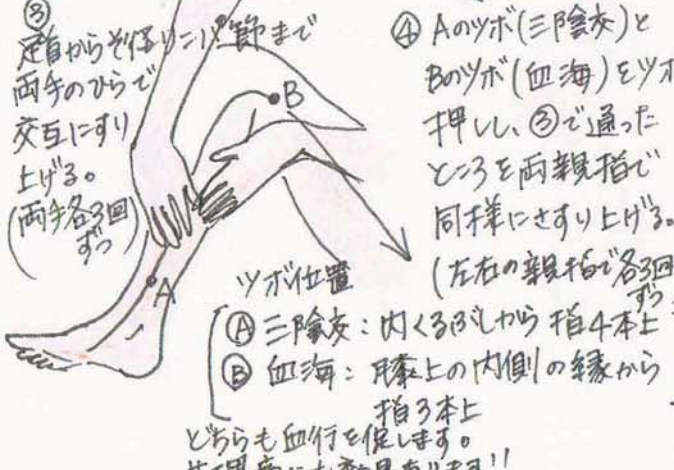 ③
足首からそ径リンパ節まで
両手のひらで
交互にすり
上げる。
(両手各3回
ずつ)
④ Aのツボ(三陰交)と
Bのツボ(血海)をツボ
押しし、③で通った
ところを両親指で
同様にさすり上げる。
(左右の親指で各3回
ずつ
B
A
ツボ位置
Ⓐ 三陰交：内くるぶしから指4本上
Ⓑ 血海：膝上の内側の縁から
指3本上
どちらも血行を促します。